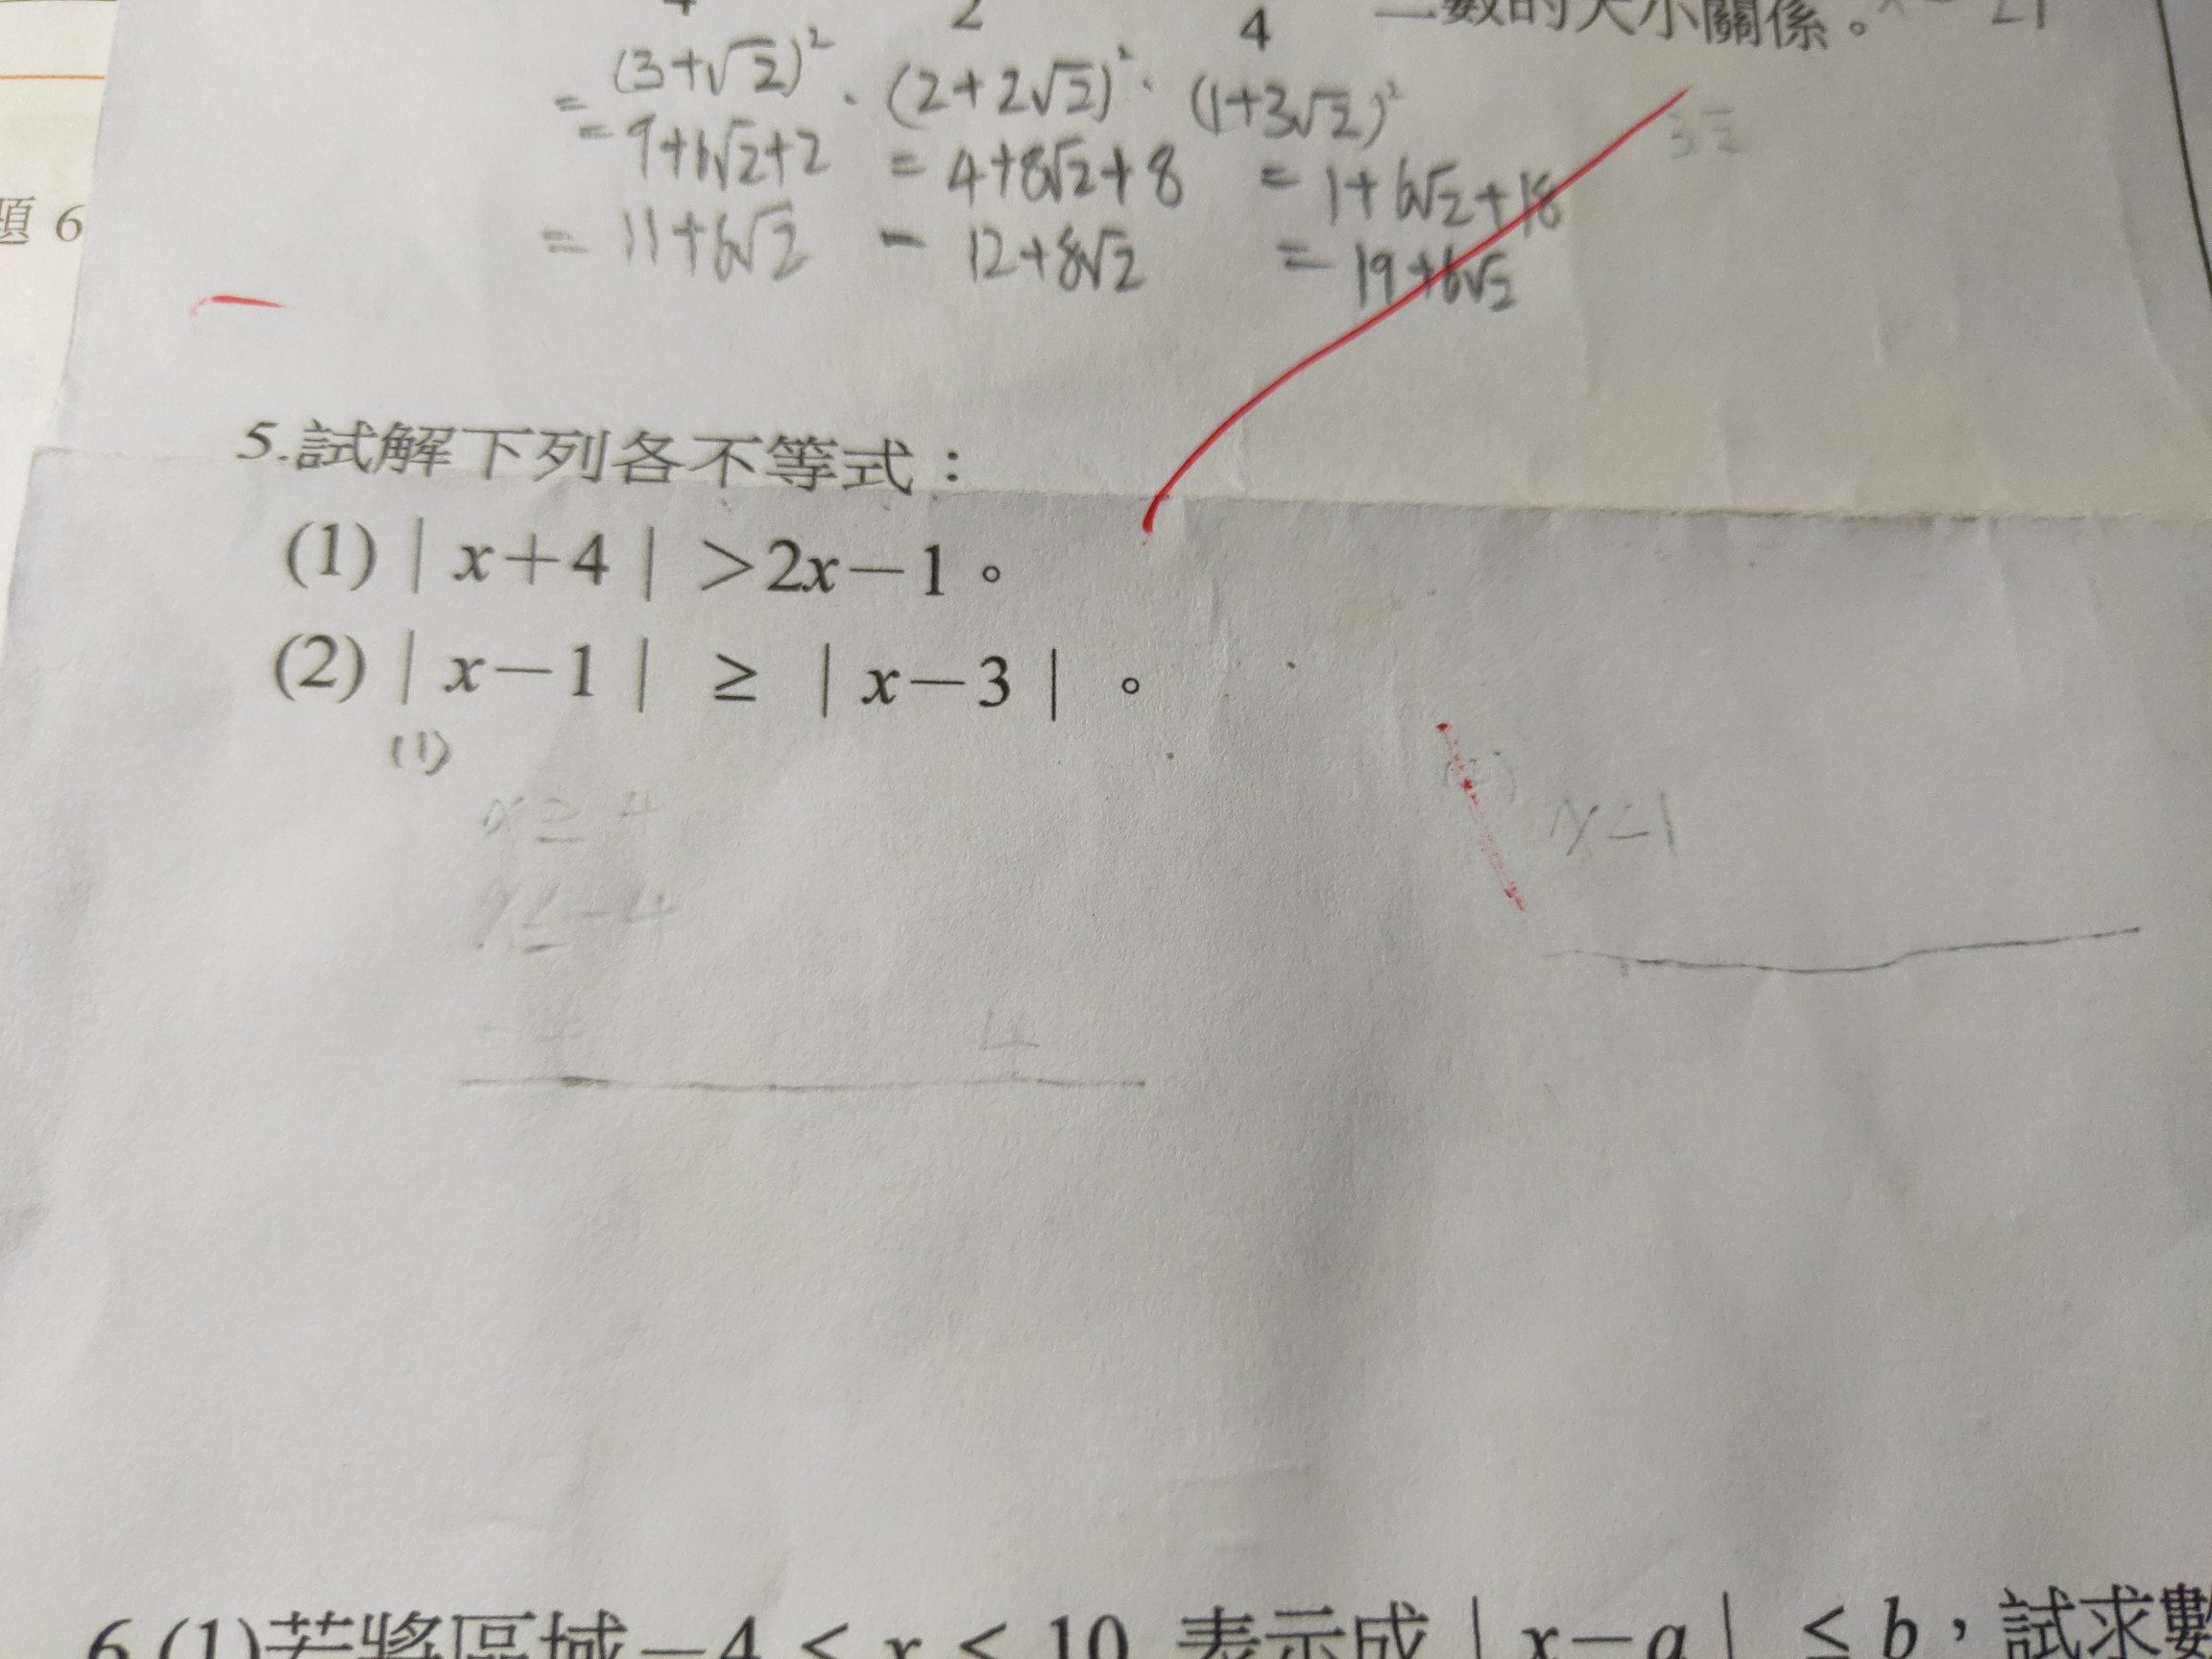 4 2 4 二數的大小關係。
= (3+√2)² · (2+2√2)² · (1+3√2)²
= 9+6√2+2 = 4+8√2+8 = 1+6√2+18
= 11+6√2 - 12+8√2 = 19+6√2
3√2
題 6
5.試解下列各不等式：
(1)| x+4 | >2x-1。
(2)| x-1 | ≥ | x-3 | 。
(1)
x≥4
x≤-4
-4 4
(2) x<1
6.(1)若將區域-4≤x≤10 表示成 | x-a | ≤b，試求數